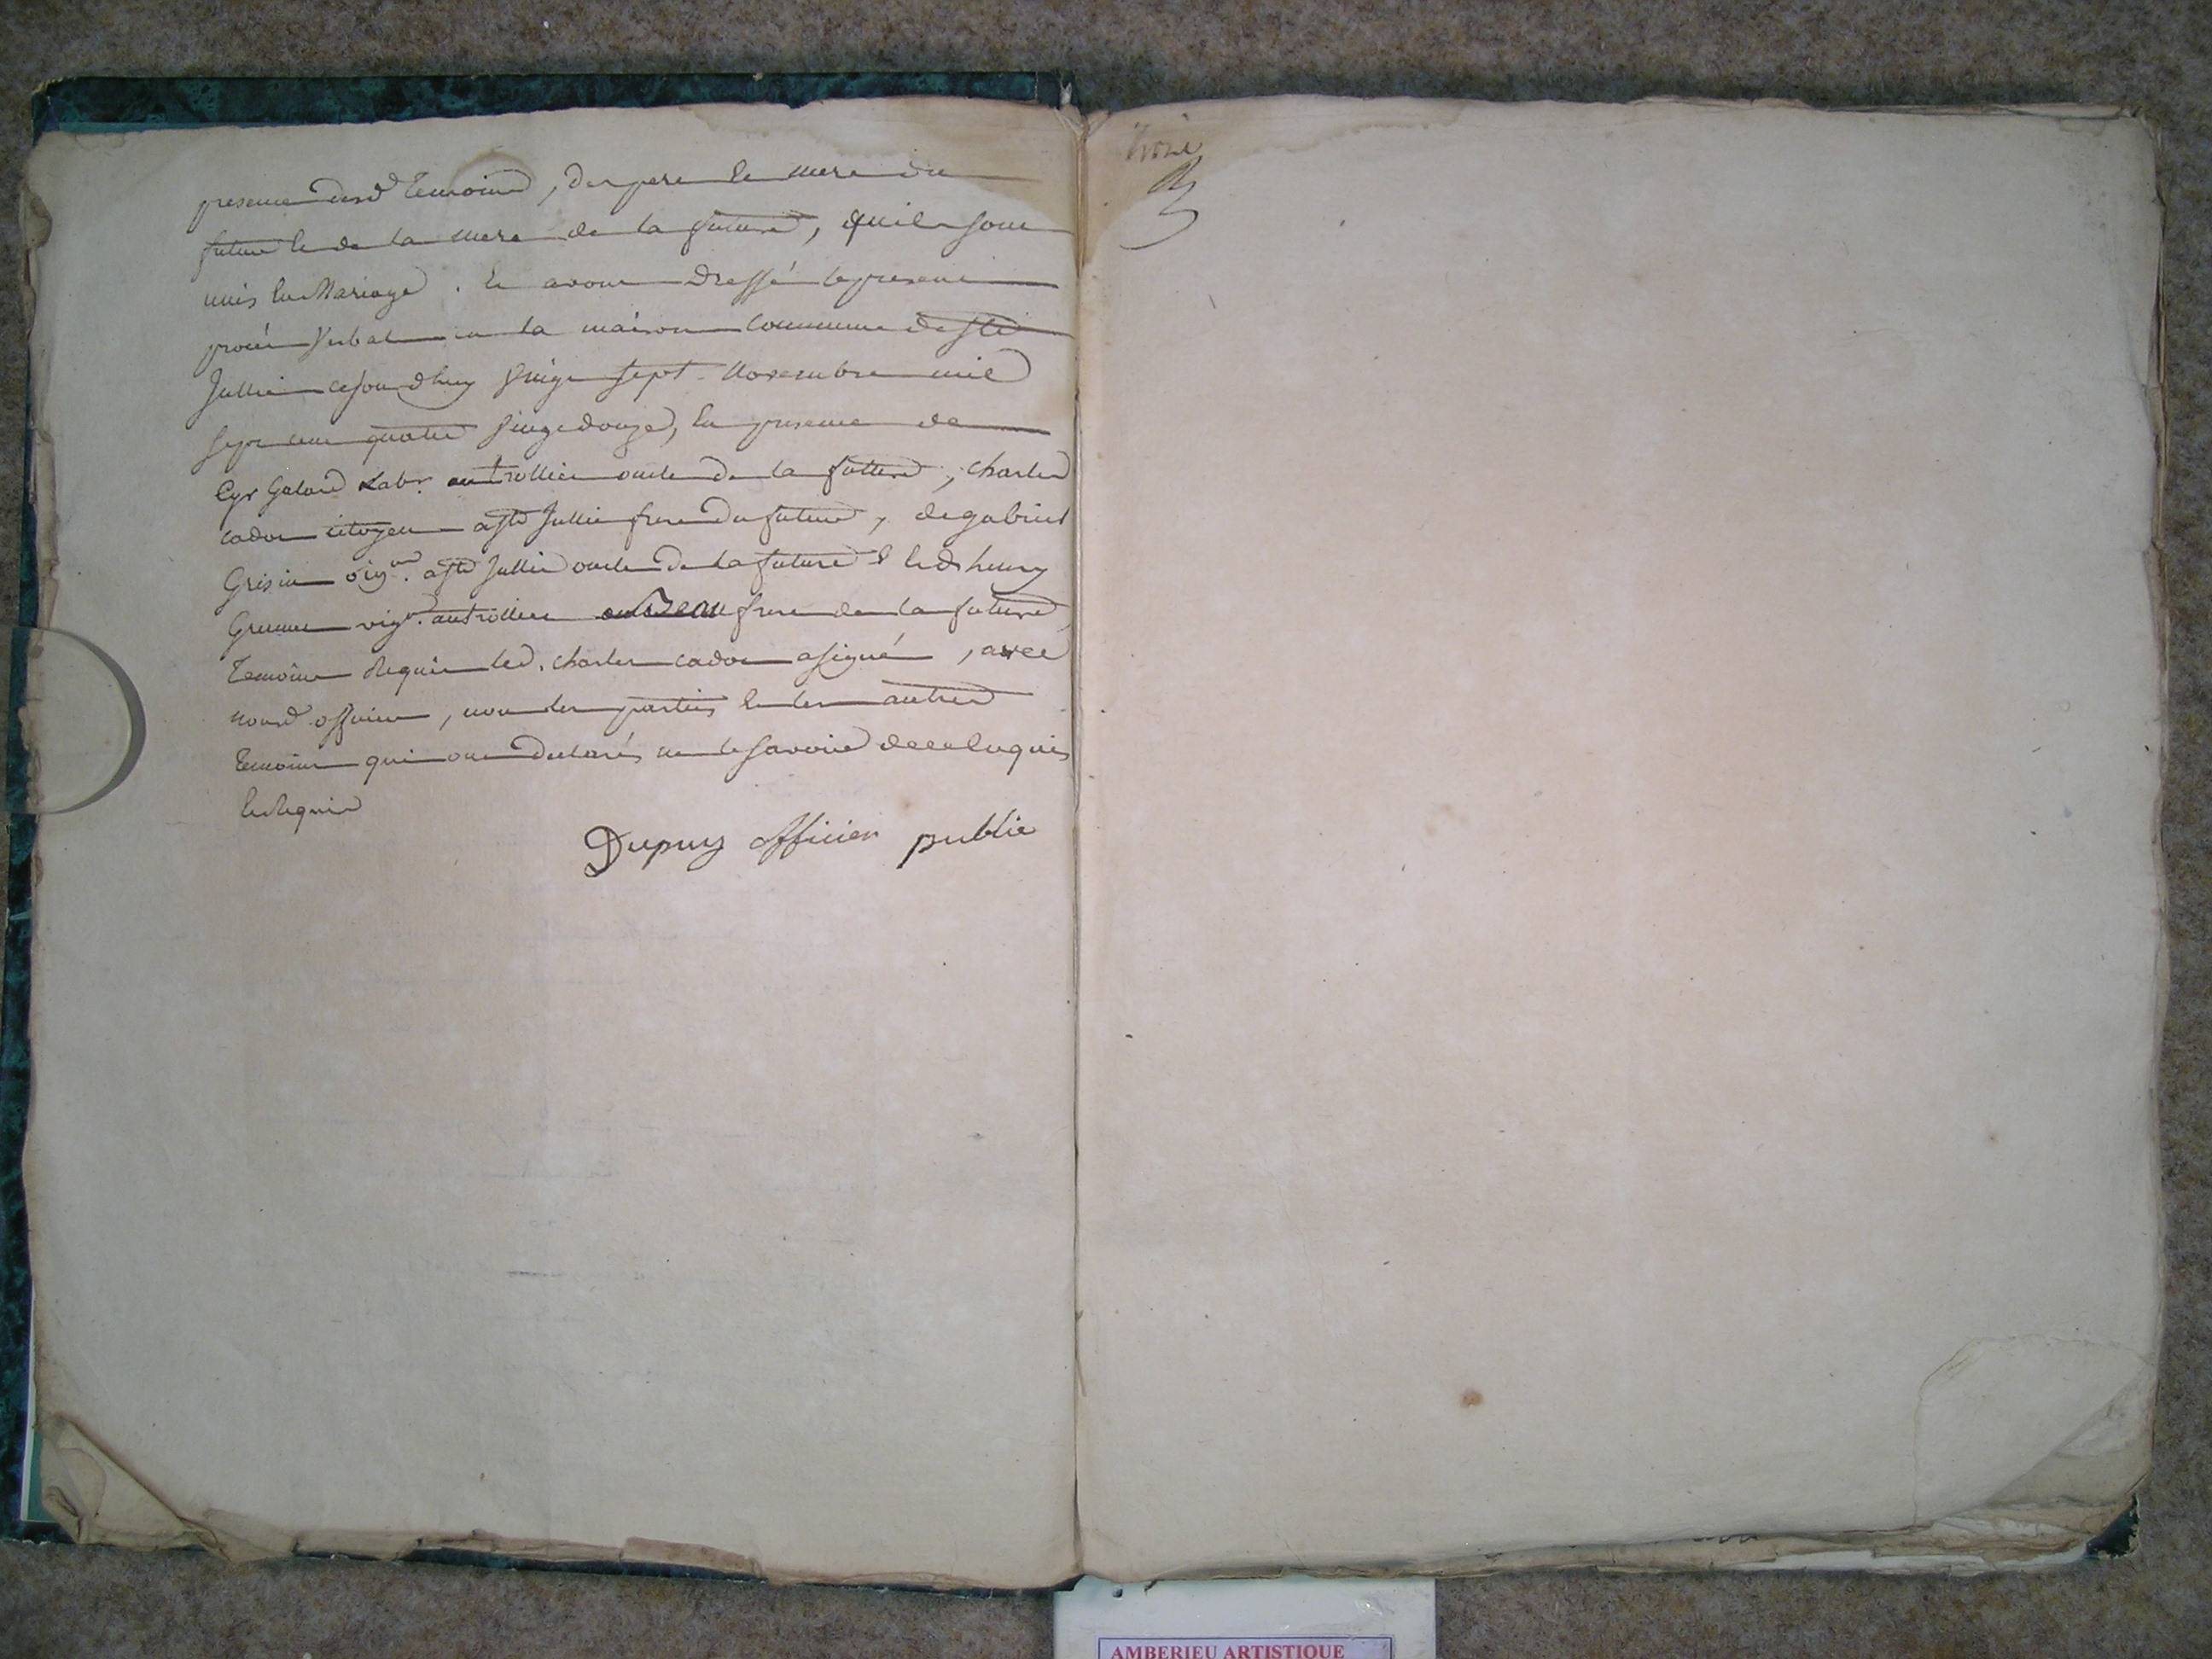 presence desd temoins, des pere et mere du
futur et de la mere de la future, quils sont
unis en Mariage. et avons dressé le present
procés verbal en la maison commune de Ste
Jullie cejourdhuy vingt sept Novembre mil
sept cent quatre vingt douze, en presence de
Cyr Galand Labr. au trollier oncle de la future, charles
cadot citoyen a Ste Jullie frere du futur, de gabriel
Grisin vign. a Ste Jullie oncle de la future & led henry
vign. au trollier beau frere de la future
Temoins Requis led. charles cadot a signé, avec
nousd. officier, non les parties et les autres
temoins qui ont declarés ne le savoir de ce enquis
et Requis
Dupuy officier public